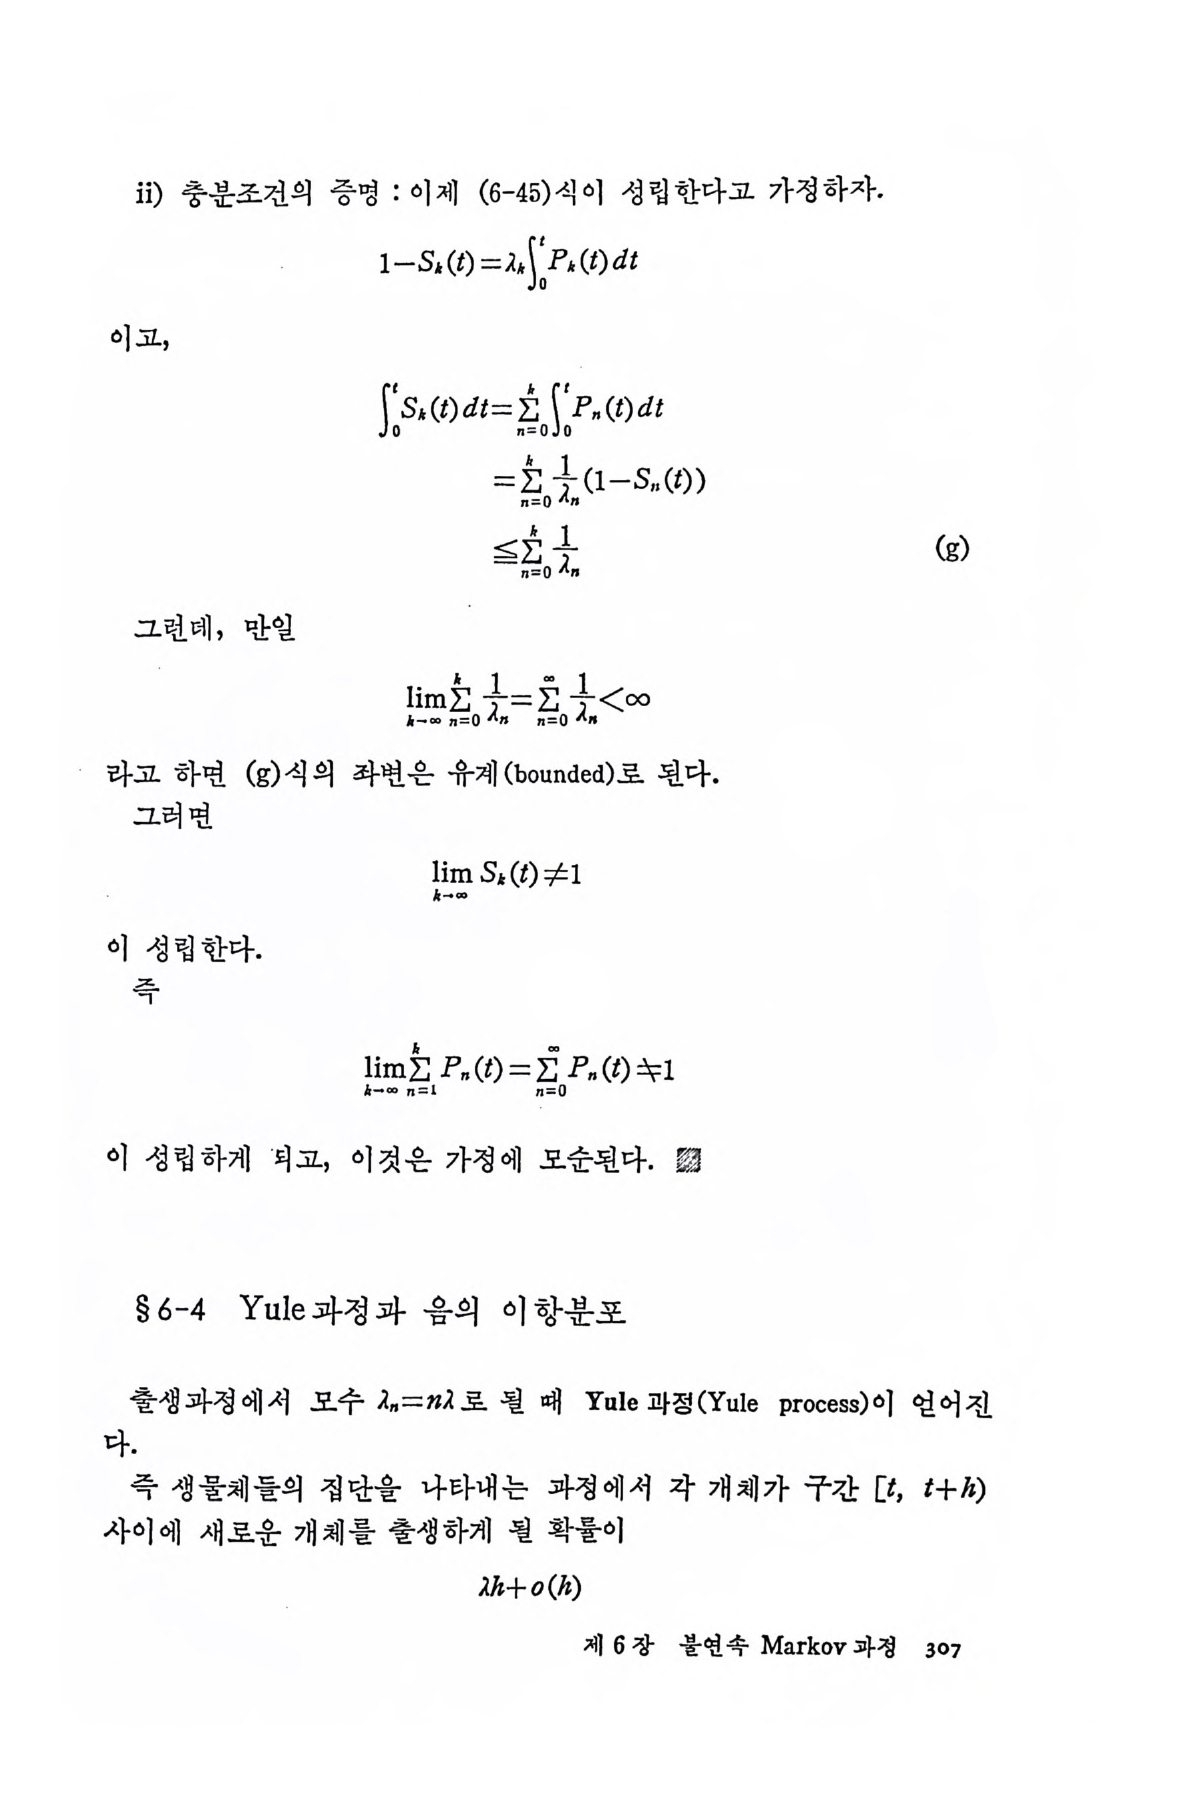 ii) 충분조건의 증명 : 이제 (6-45)식이 성립한다고 가정하자.
$1-S_k(t)=\lambda_k\int_0^t P_k(t)dt$
이고,
$\int_0^t S_k(t)dt=\sum_{n=0}^{k}\int_0^t P_n(t)dt$
$=\sum_{n=0}^{k}\frac{1}{\lambda_n}(1-S_n(t))$
$\leqq\sum_{n=0}^{k}\frac{1}{\lambda_n}$ (g)
그런데, 만일
$\lim_{k\to\infty}\sum_{n=0}^{k}\frac{1}{\lambda_n}=\sum_{n=0}^{\infty}\frac{1}{\lambda_n}<\infty$
라고 하면 (g)식의 좌변은 유계(bounded)로 된다.
그러면
$\lim_{k\to\infty}S_k(t)\neq1$
이 성립한다.
즉
$\lim_{k\to\infty}\sum_{n=1}^{k}P_n(t)=\sum_{n=0}^{\infty}P_n(t)\neq1$
이 성립하게 되고, 이것은 가정에 모순된다. ▨
§ 6-4 Yule과정과 음의 이항분포
출생과정에서 모수 $\lambda_n=n\lambda$로 될 때 Yule과정(Yule process)이 얻어진
다.
즉 생물체들의 집단을 나타내는 과정에서 각 개체가 구간 [t, t+h)
사이에 새로운 개체를 출생하게 될 확률이
$\lambda h+o(h)$
제 6 장 불연속 Markov 과정 307